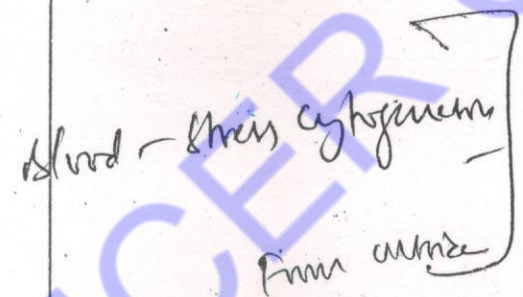 Blood - Stress cytogenetics
From outside
CER